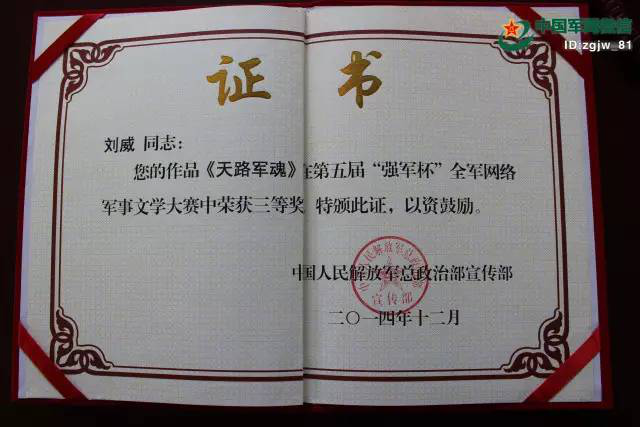 中国军网微信
ID:zgjw_81
证书
刘威 同志：
您的作品《天路军魂》在第五届“强军杯”全军网络
军事文学大赛中荣获三等奖 特颁此证，以资鼓励。
中国人民解放军总政治部宣传部
中国人民解放军总政治部
宣传部
二〇一四年十二月